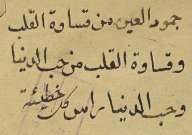 جمود العين من قساوة القلب
وقساوة القلب من حب الدنيا
وحب الدنيا راس كل خطيئة